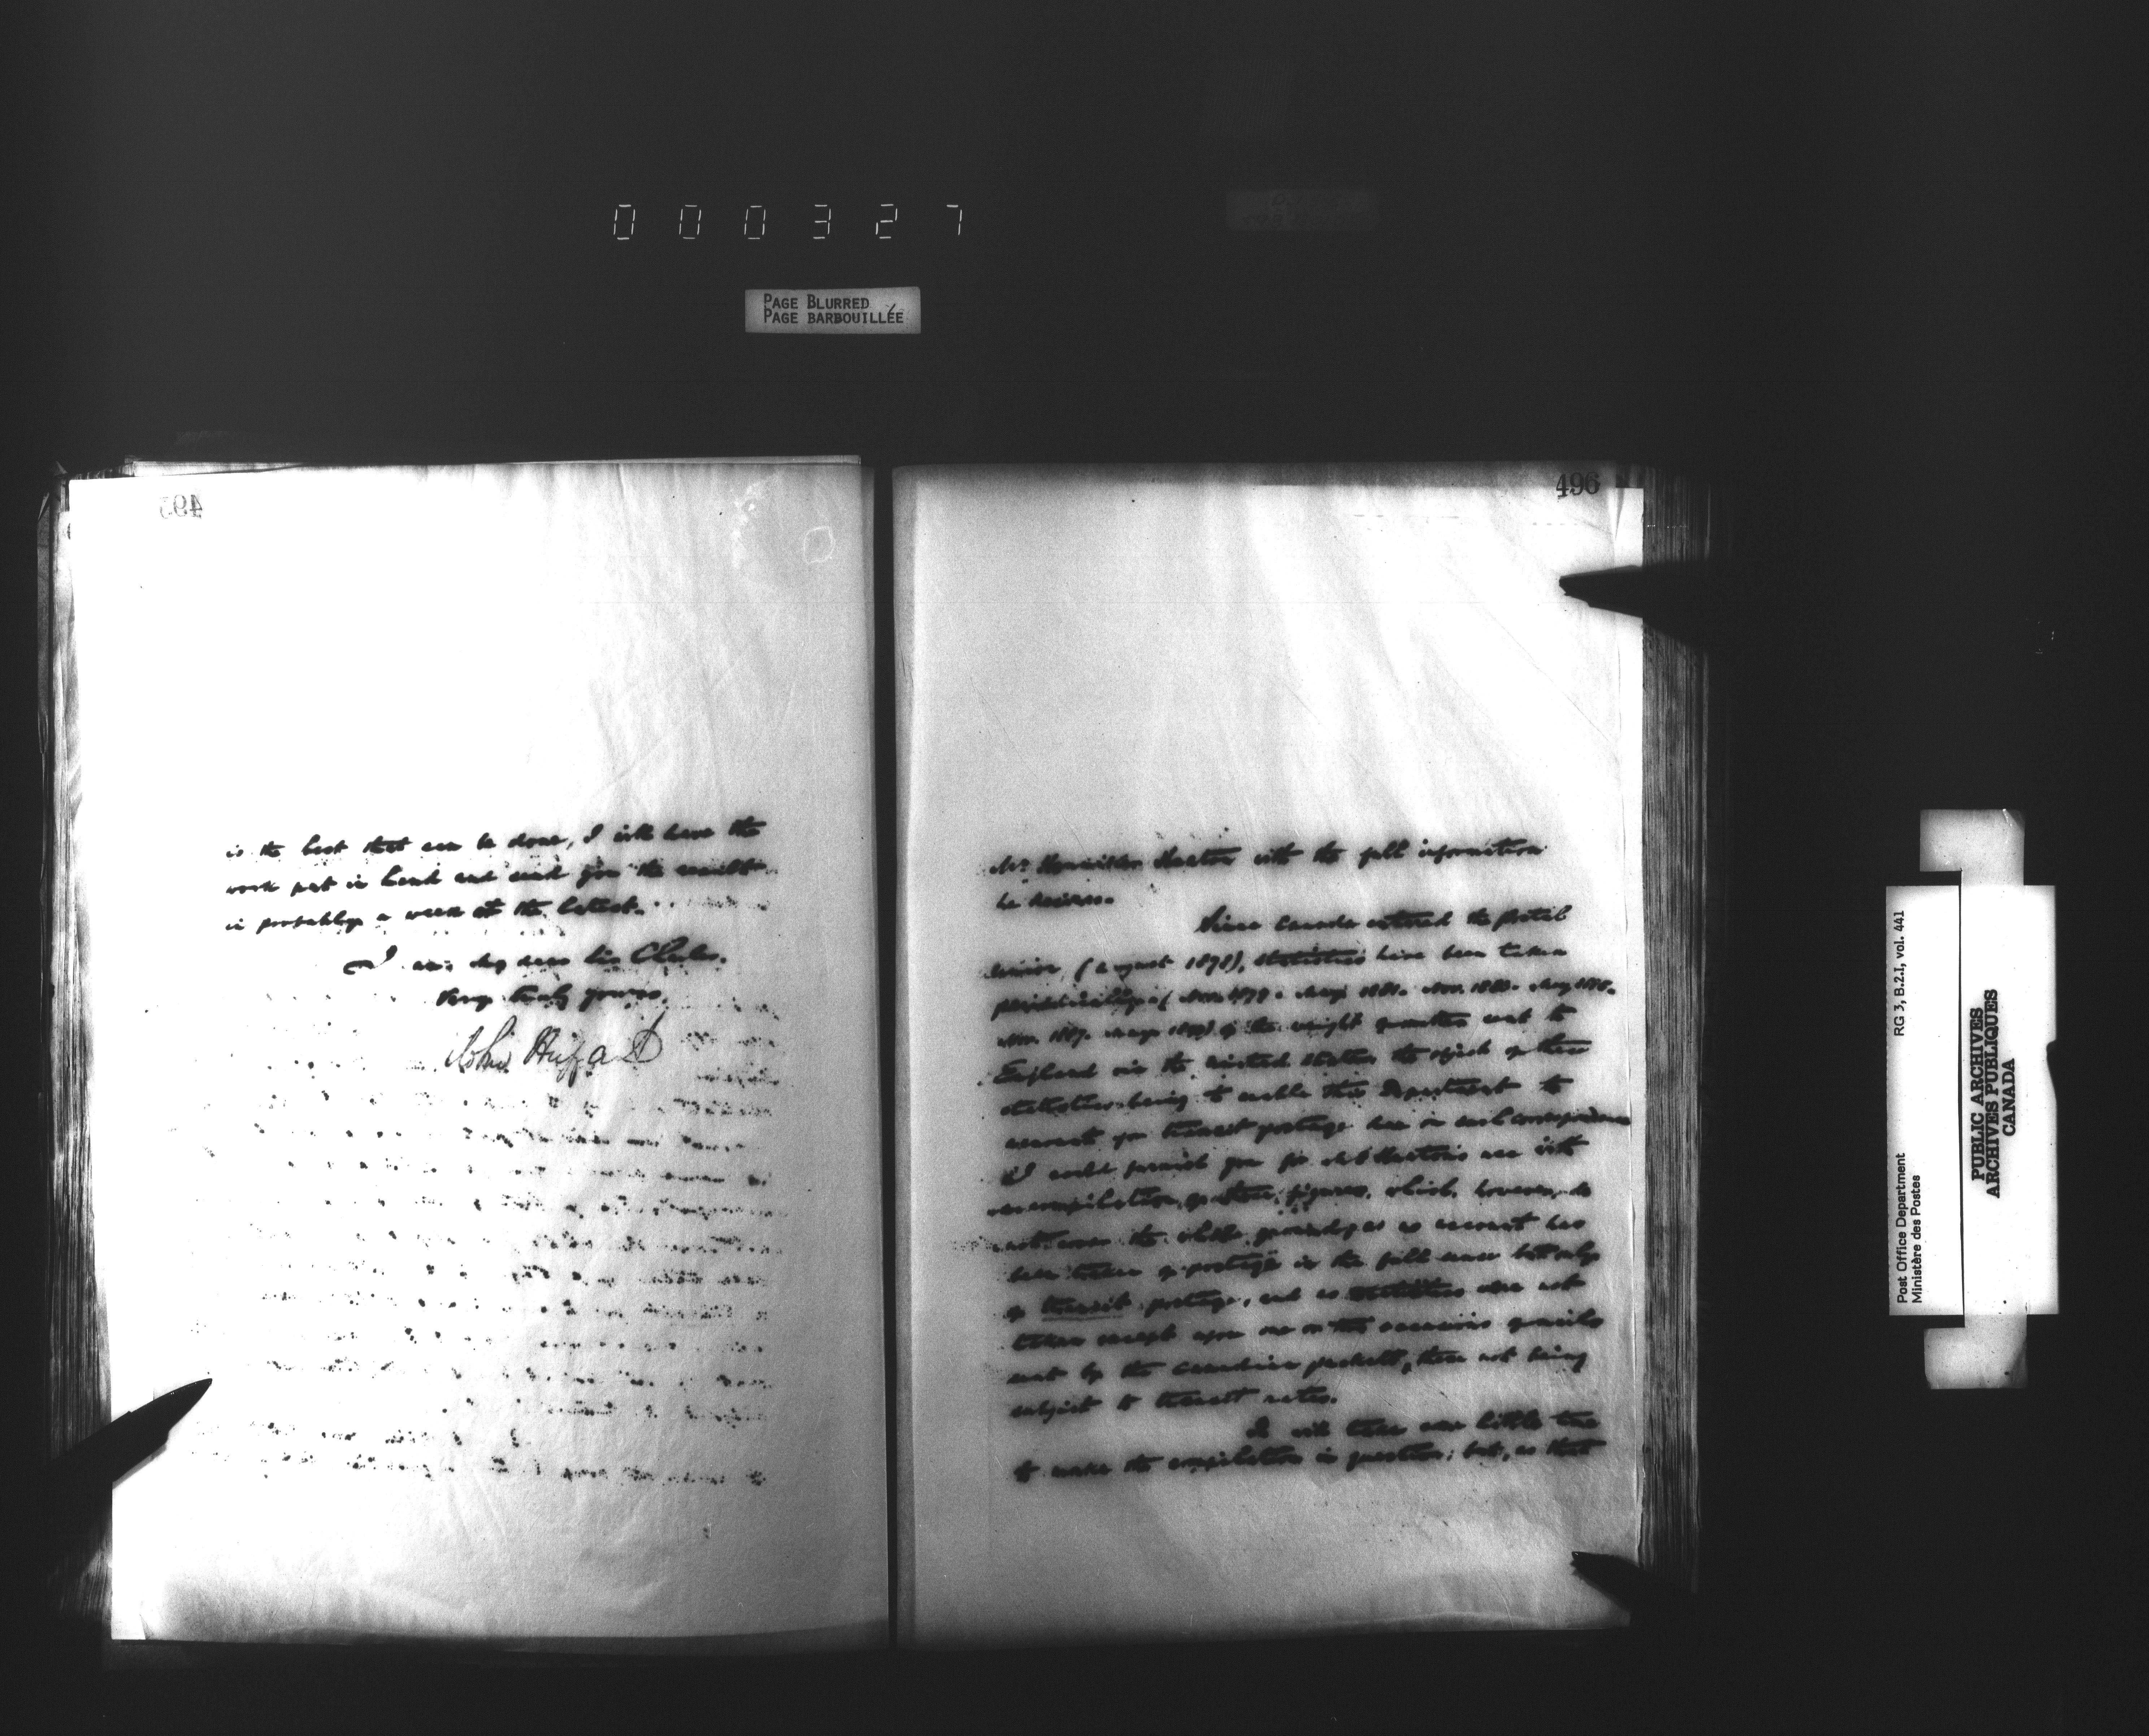 000327
PAGE BLURRED
PAGE BARBOUILLÉE
495
is the best that can be done, I will have the
work put in hand and send you the result
in probably a week at the latest.
I am, my dear Sir Charles,
Very truly yours,
John
496
Mr Hamilton with the full information
he desires.
Since Canada entered the Postal
Union, (August 1878), statistics have been taken
periodically
Nov. 1887. May of the weight sent to
England via the United States, the object of these
statistics being to enable this Department to
account for transit postage due on such correspondence
I could furnish you for use with
a compilation of these figures, which, however, do
not cover the whole ground, as no account has
been taken of postage in the full sense but only
of transit postage, and as statistics were not
taken except upon one or two occasions of mails
sent by the Canadian packets, these not being
subject to transit rates.
It will take some little time
to make the compilation in question; but, as that
RG 3, B.2.1, vol. 441
Post Office Department
Ministère des Postes
PUBLIC ARCHIVES
ARCHIVES PUBLIQUES
CANADA